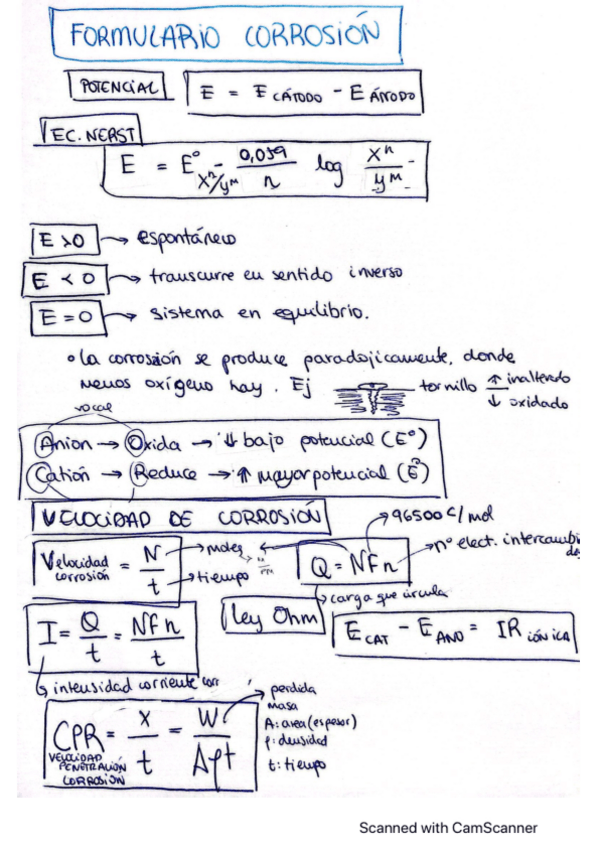 FORMULARIO CORROSIÓN
POTENCIAL E = E CÁTODO - E ÁNODO
EC. NERST
E = E° Xⁿ/yᴹ - 0,059/n log Xⁿ/yᴹ
E > 0 → espontáneo
E < 0 → transcurre en sentido inverso
E = 0 → sistema en equilibrio.
• la corrosión se produce paradojicamente, donde
menos oxígeno hay. Ej tornillo ↑ inalterado
↓ oxidado
vocal
Anion → Oxida → ↓ bajo potencial (E°)
Catión → Reduce → ↑ mayor potencial (E°)
VELOCIDAD DE CORROSIÓN
→ 96500 C/mol
Velocidad corrosión = N/t → moles → tiempo
Q = NFn → nº elect. intercambi
→ carga que circula
I = Q/t = NFn/t
ley Ohm
E CAT - E ANO = I R iónica
→ intensidad corriente corr
CPR = X/t = W/Aρt
VELOCIDAD PENETRACIÓN CORROSIÓN
perdida
masa
A: area (espesor)
ρ: densidad
t: tiempo
Scanned with CamScanner